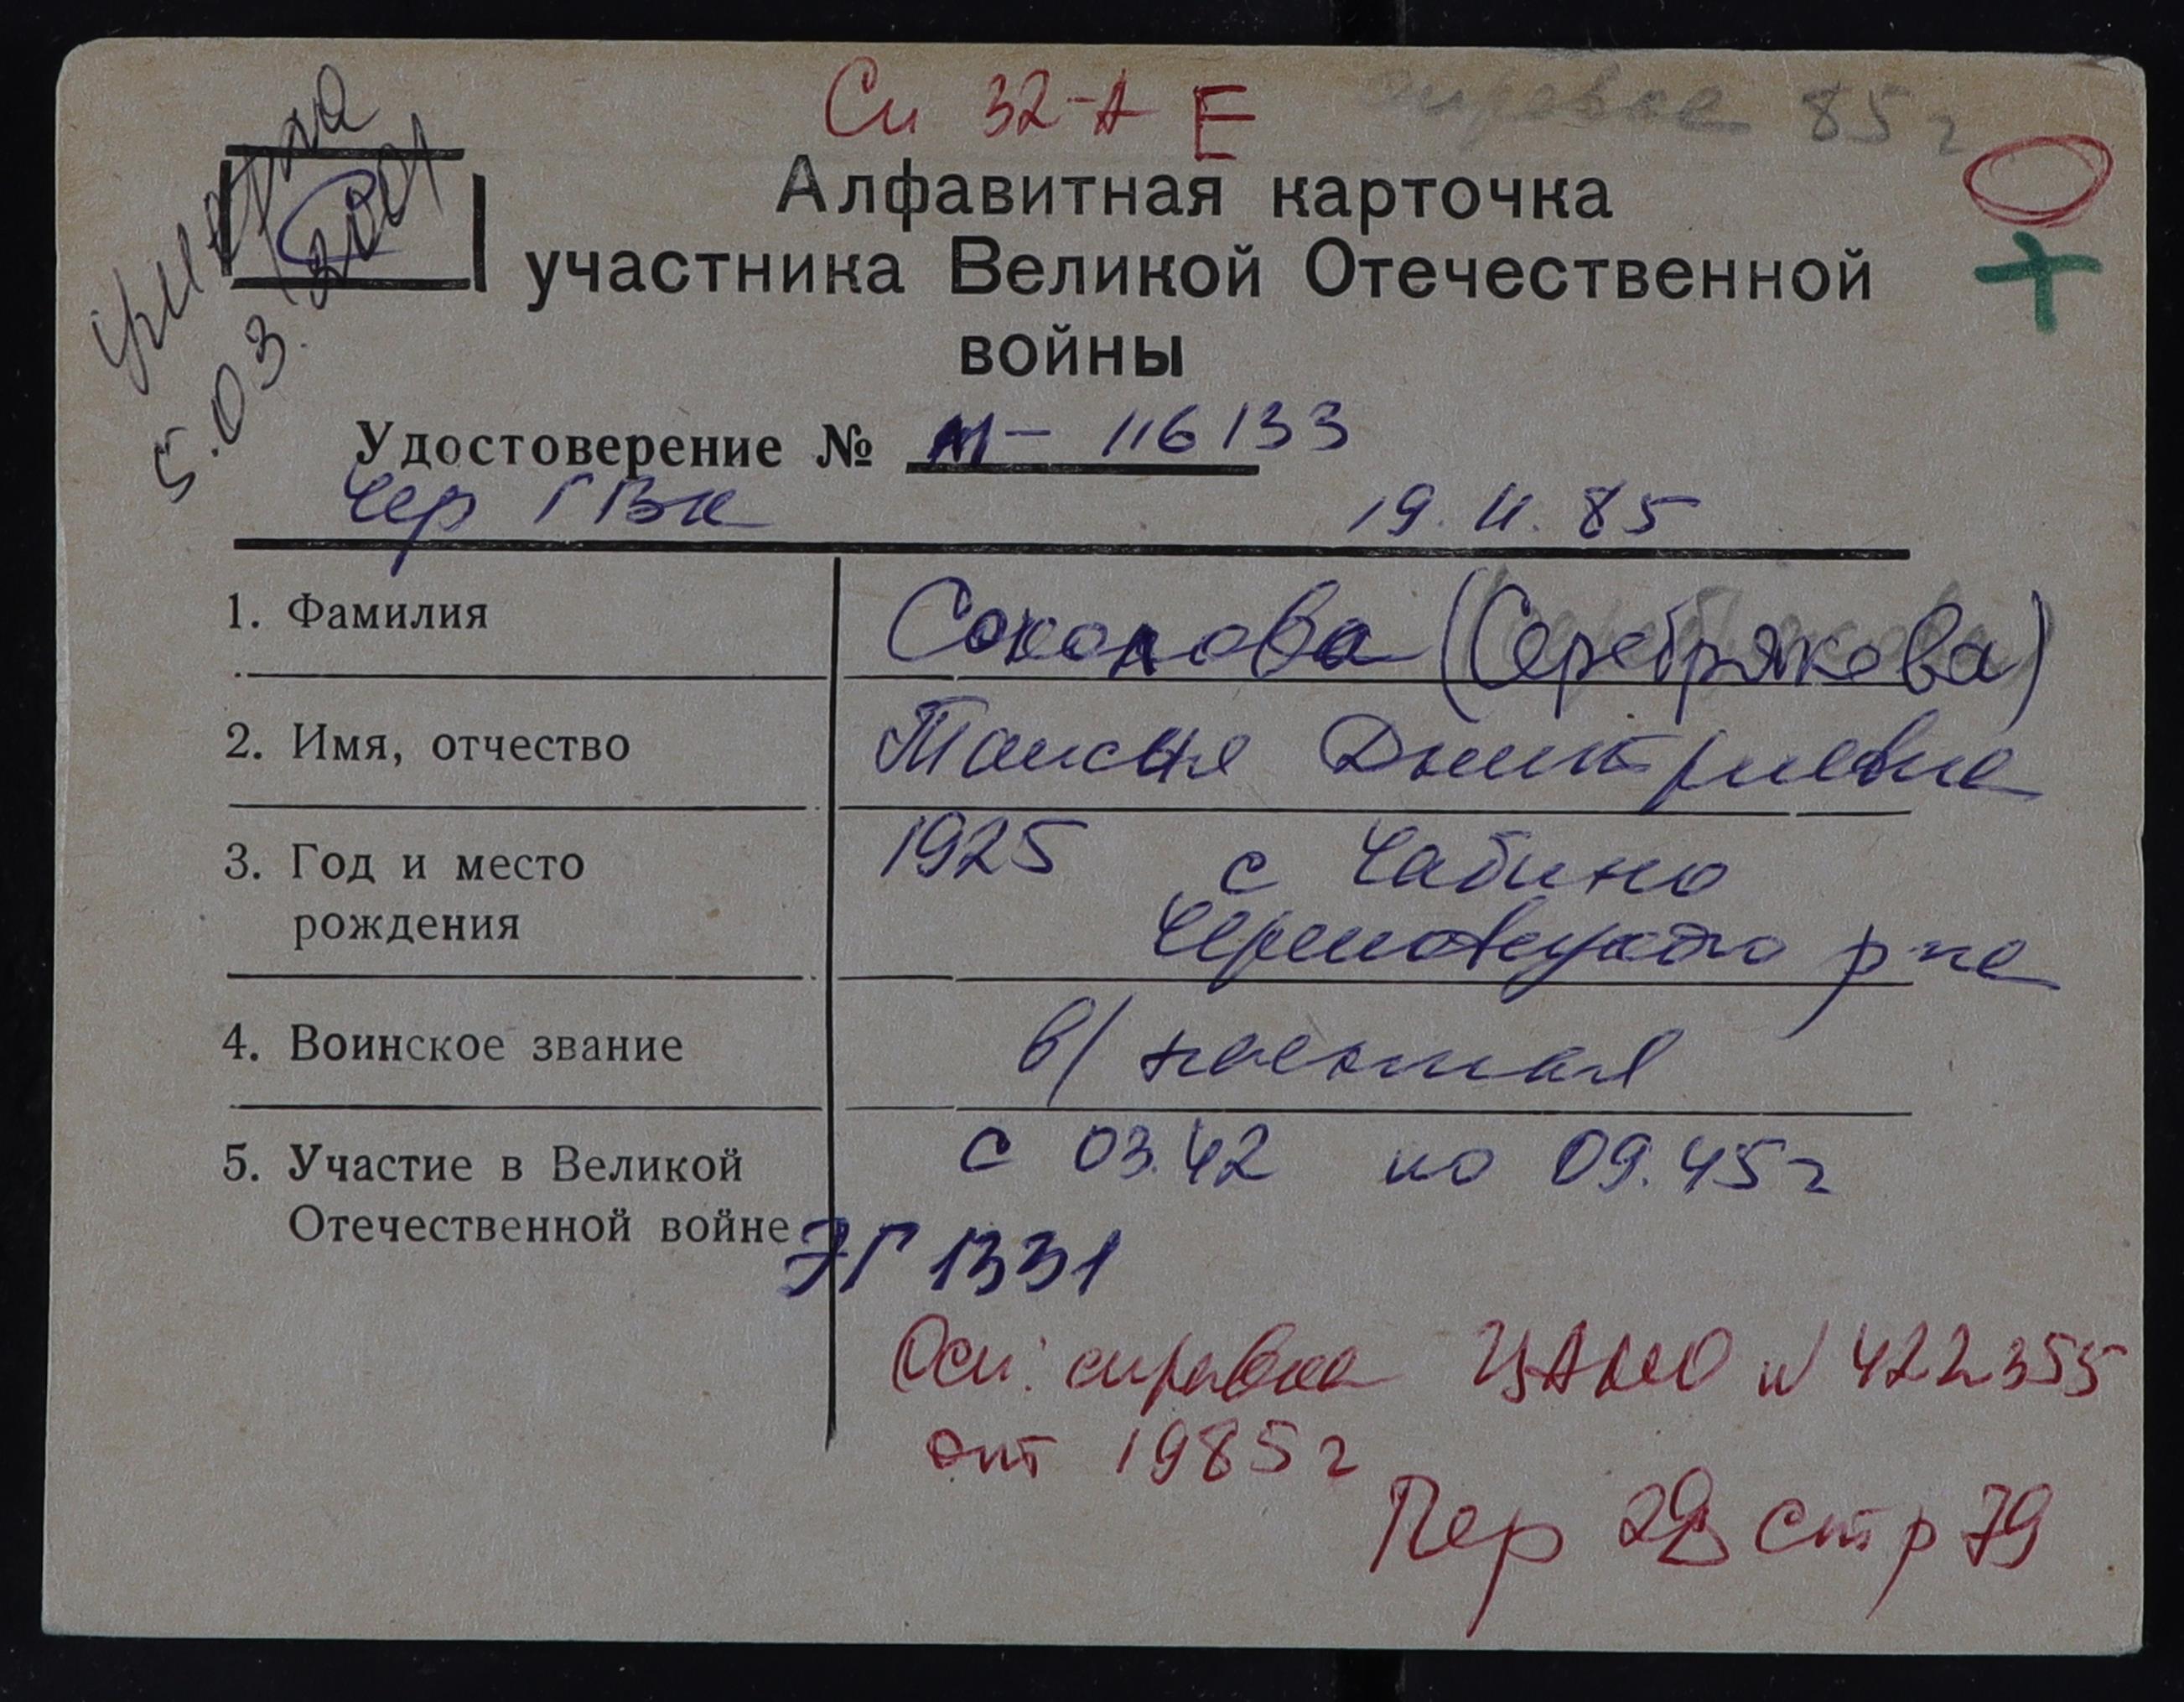 Си 32-А Е
85 г
умерла
5.03.2001
С
Алфавитная карточка
участника Великой Отечественной
войны
Удостоверение № М- 116133
Чер ГВК 19.11.85
1. Фамилия Соколова (Серебрякова)
2. Имя, отчество Таисья Дмитриевна
3. Год и место 1925 с Чабино
рождения Череповецкого р-на
4. Воинское звание в/наемная
5. Участие в Великой с 03.42 по 09.45 г
Отечественной войне ЭГ 1331
Осн: справка ЦАМО № 422355
от 1985 г
Пер стр 79